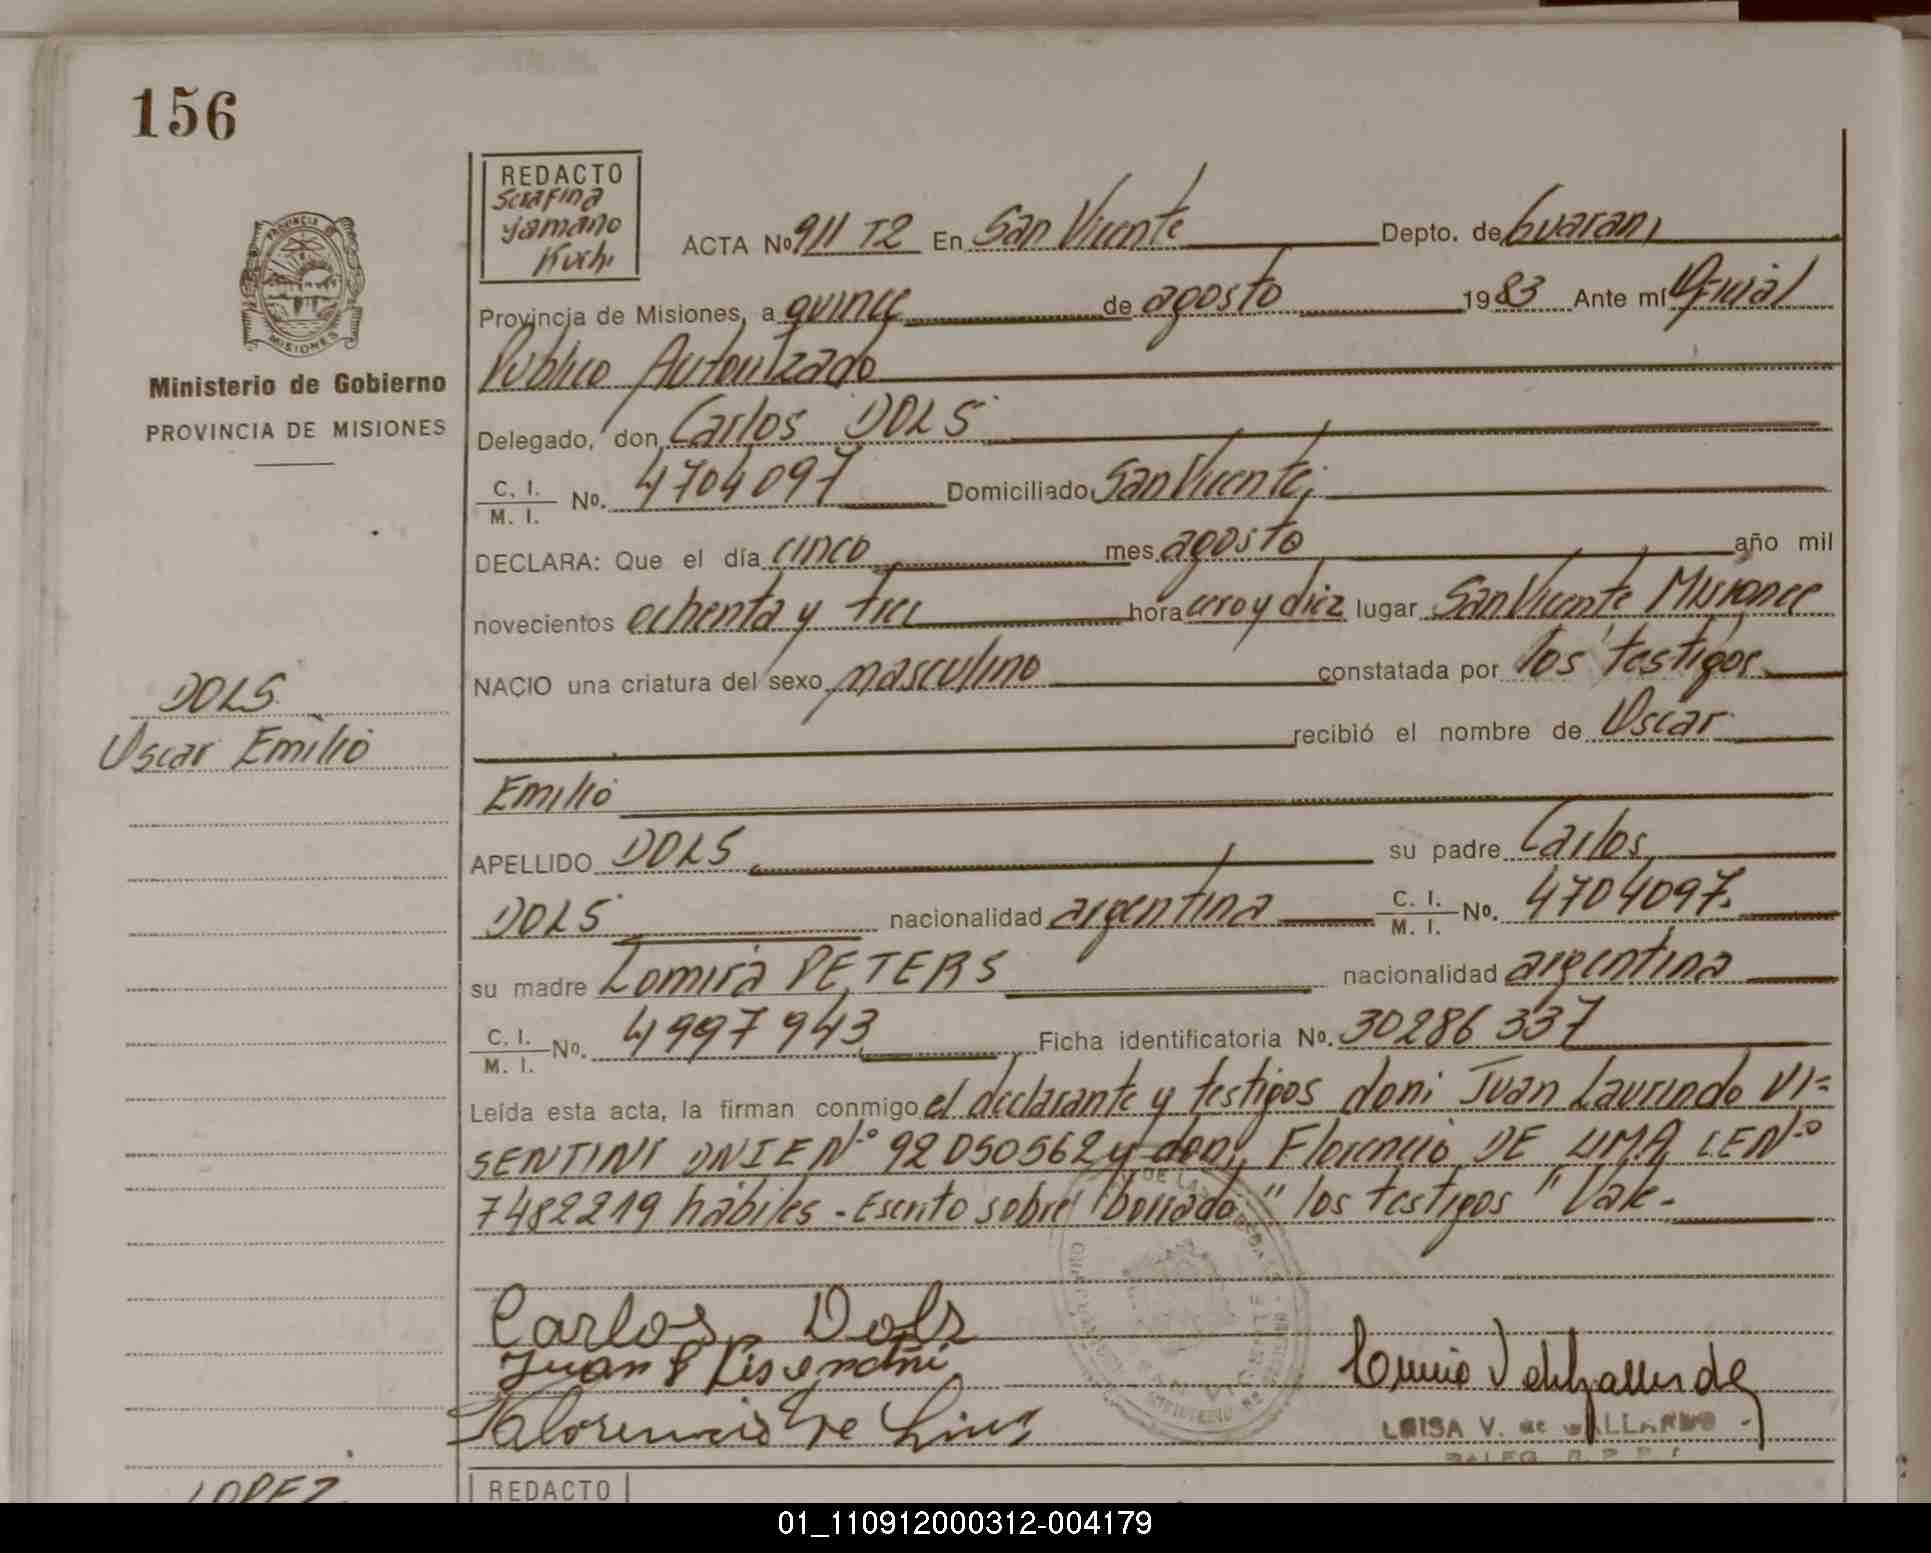 156
REDACTO
Serafina
Yamano
Kuchi
PROVINCIA DE
MISIONES
Ministerio de Gobierno
PROVINCIA DE MISIONES
ACTA No 911 T2 En San Vicente Depto. de Guarani
Provincia de Misiones, a quince de agosto 1983 Ante mí Oficial
Público Autorizado
Delegado, don Carlos DOLS
C. I. / M. I. No. 4704097 Domiciliado San Vicente,
DECLARA: Que el día cinco mes agosto año mil
novecientos ochenta y tres hora cero y diez lugar San Vicente Misiones
NACIO una criatura del sexo masculino constatada por los testigos
recibió el nombre de Oscar
Emilio
APELLIDO DOLS su padre Carlos
DOLS nacionalidad argentina C. I. / M. I. No. 4704097
su madre Lomira PETERS nacionalidad argentina
C. I. / M. I. No. 4997943 Ficha identificatoria No. 30286337
Leída esta acta, la firman conmigo el declarante y testigos doni Juan Laurindo VI=
SENTINI DNIE Nº 92050562 y don, Florencio DE LIMA LE Nº
7482219 hábiles - Escrito sobre borrado "los testigos" Vale -
DOLS
Oscar Emilio
Carlos Dols
Juan L Visentini
Florencio De Lima
LUISA V. de GALLARDO
LOPEZ
REDACTO
01_110912000312-004179